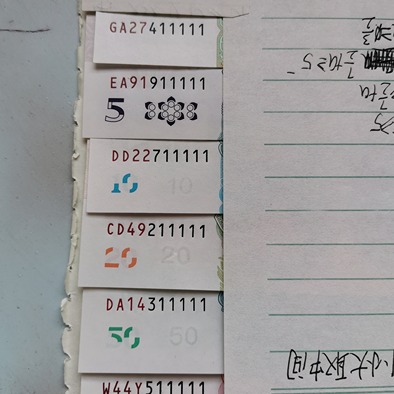 GA27411111
EA91911111
5
DD22711111
10 10
CD49211111
20 20
DA14311111
50 50
W44Y511111
小大取中间